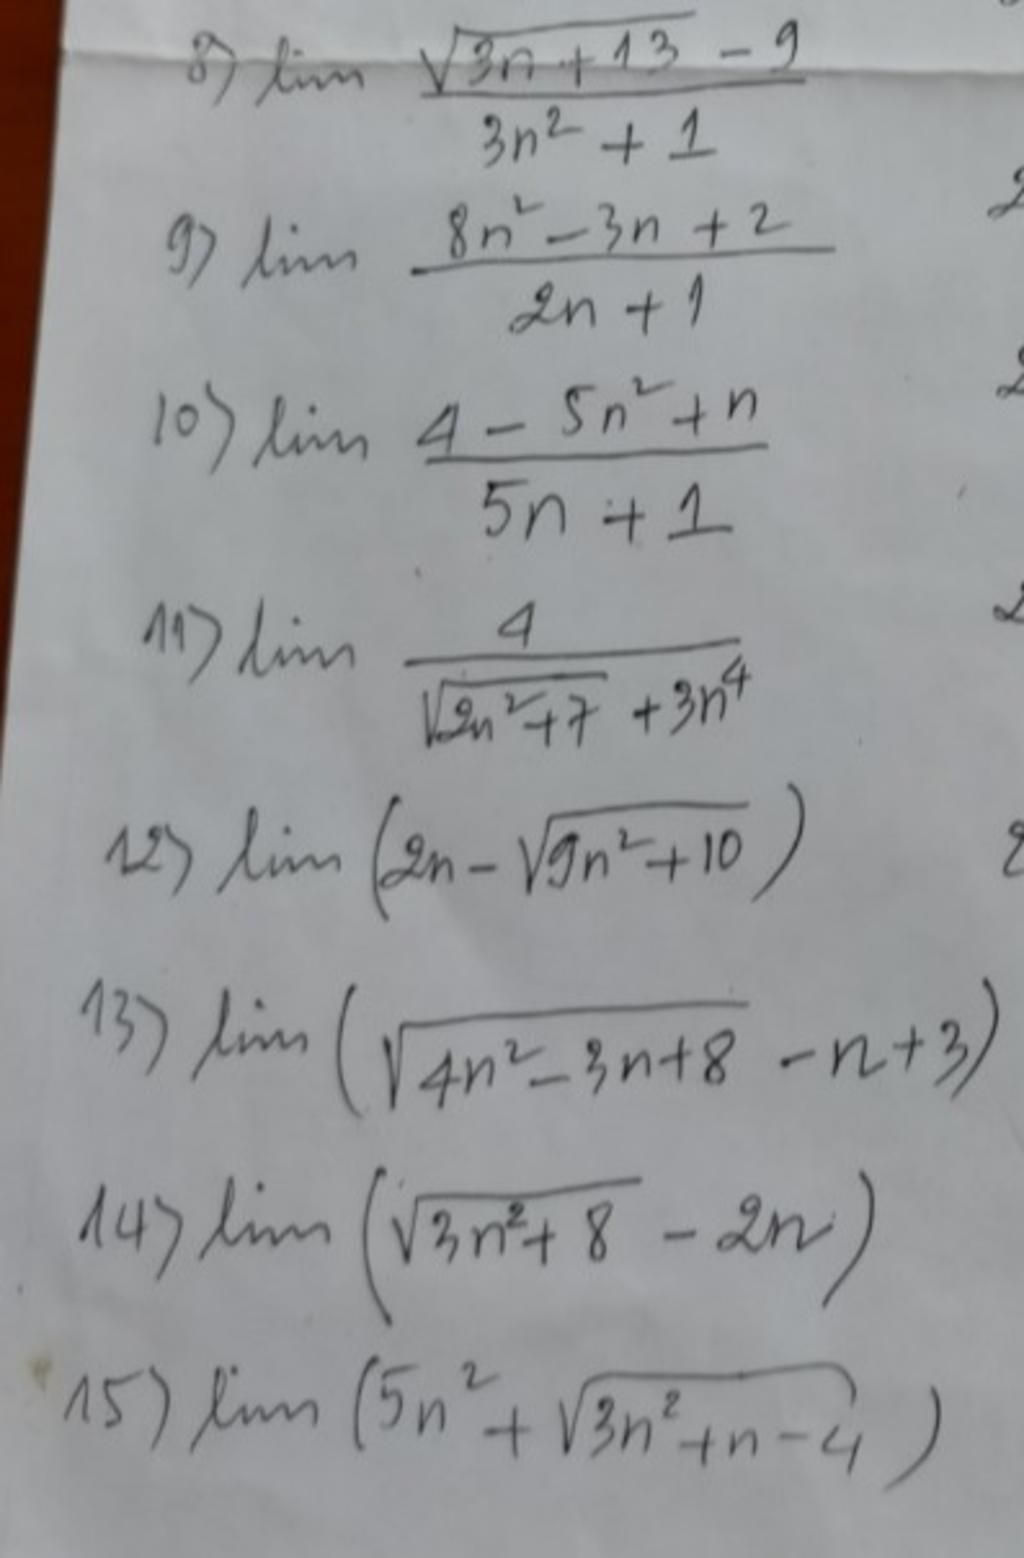 8) lim (√(3n+13) - 9)/(3n² + 1)
9) lim (8n² - 3n + 2)/(2n + 1)
10) lim (4 - 5n² + n)/(5n + 1)
11) lim 4/(√(2n²+7) + 3n⁴)
12) lim (2n - √(9n²+10))
13) lim (√(4n²-3n+8) - n+3)
14) lim (√(3n²+8) - 2n)
15) lim (5n² + √(3n²+n-4))